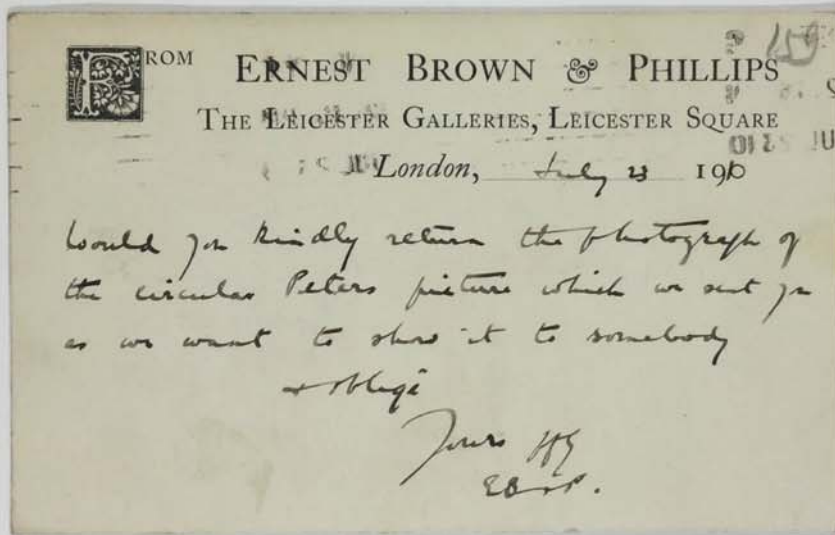 FROM ERNEST BROWN & PHILLIPS
159
THE LEICESTER GALLERIES, LEICESTER SQUARE
London, July 23 1910
Would you kindly return the photograph of
the circular Peters picture which we sent you
as we want to show it to somebody
& oblige
Yours ffy
EB & P.